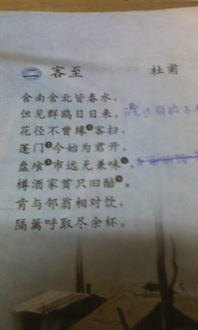 二 客至 杜甫
舍南舍北皆春水，
但见群鸥日日来。
花径不曾缘❶客扫，
蓬门❷今始为君开。
盘飧❸市远无兼味，
樽酒家贫只旧醅❹。
肯与邻翁相对饮，
隔篱呼取尽余杯。